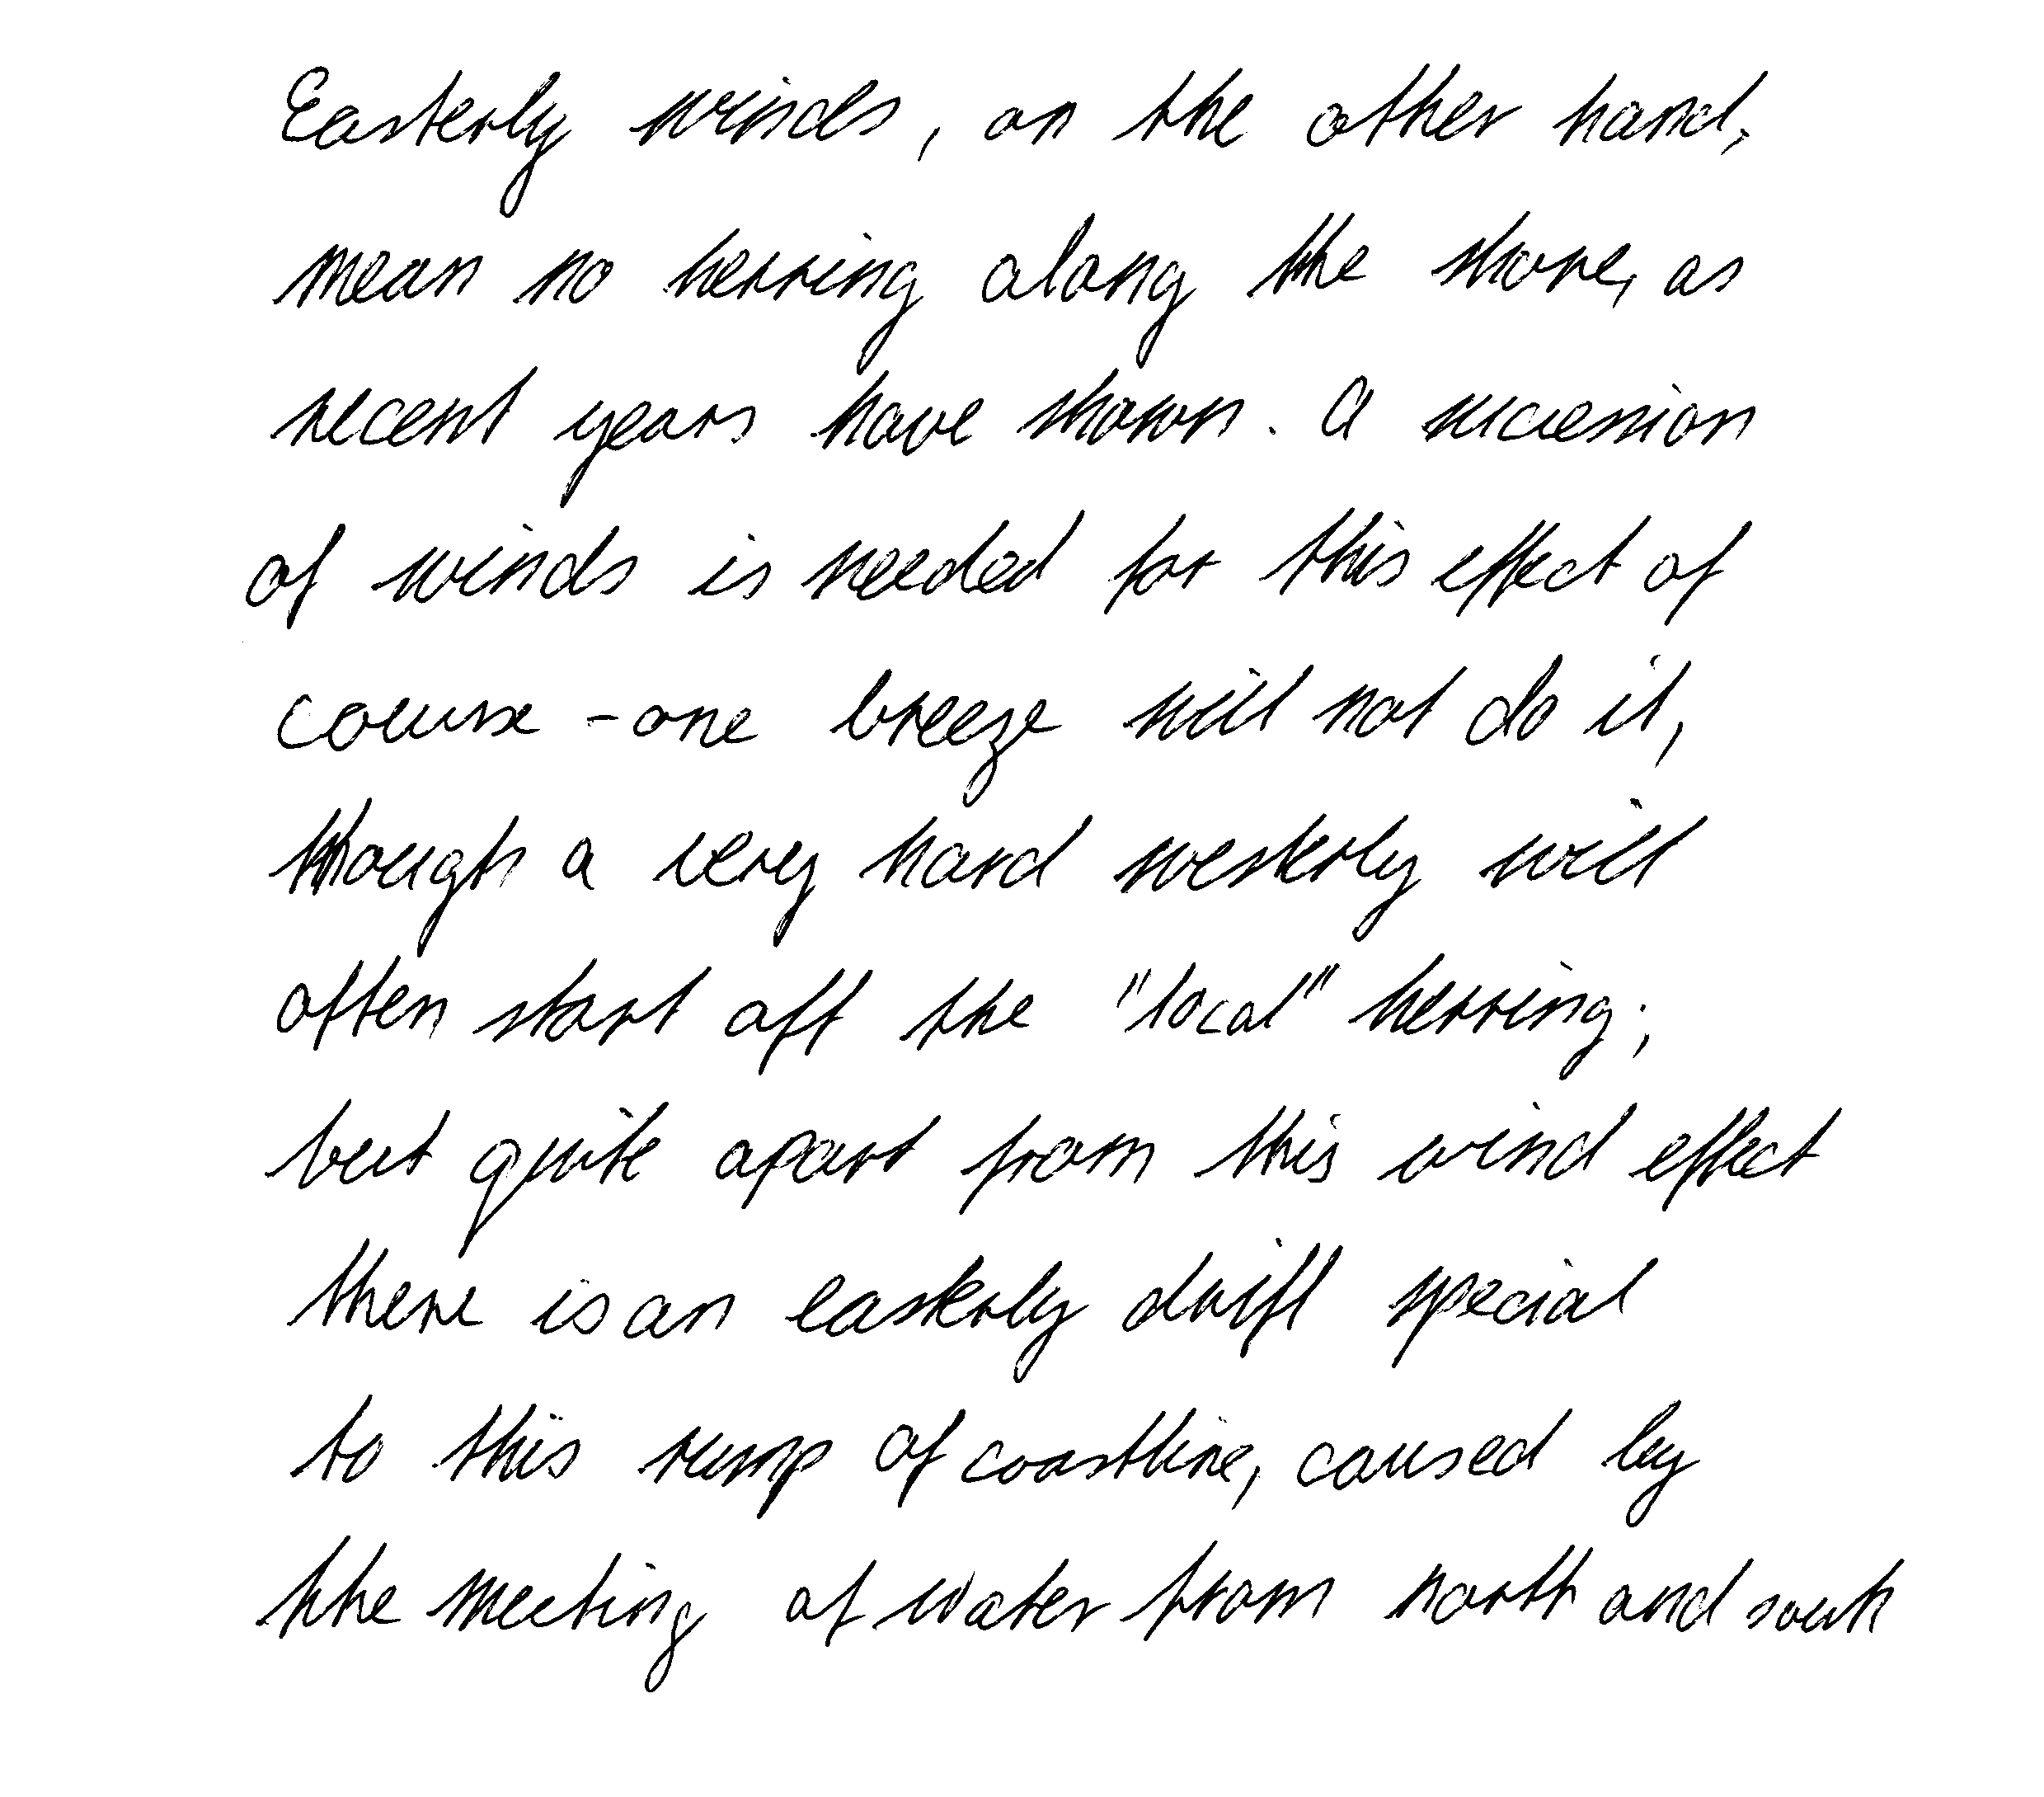 Easterly winds, on the other hand,
mean no herring along the shore, as
recent years have shown. A succession
of winds is needed for this effect of
course - one breeze will not do it,
though a very hard westerly will
often start off the "local" herring;
but quite apart from this wind effect
there is an easterly drift special
to this rump of coastline, caused by
the meeting of water from north and south